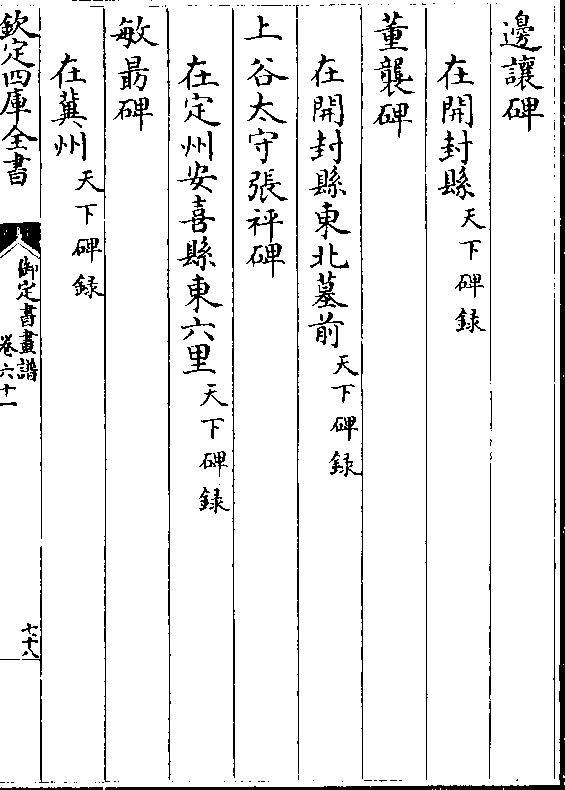 邊讓碑
在開封縣天下碑録
董襲碑
在開封縣東北墓前天下碑録
上谷太守張祁碑
在定州安喜縣東六里天下碑録
敏朂碑
在冀州天下碑録
欽定四庫全書
御定書畫譜
卷六十一
七十八